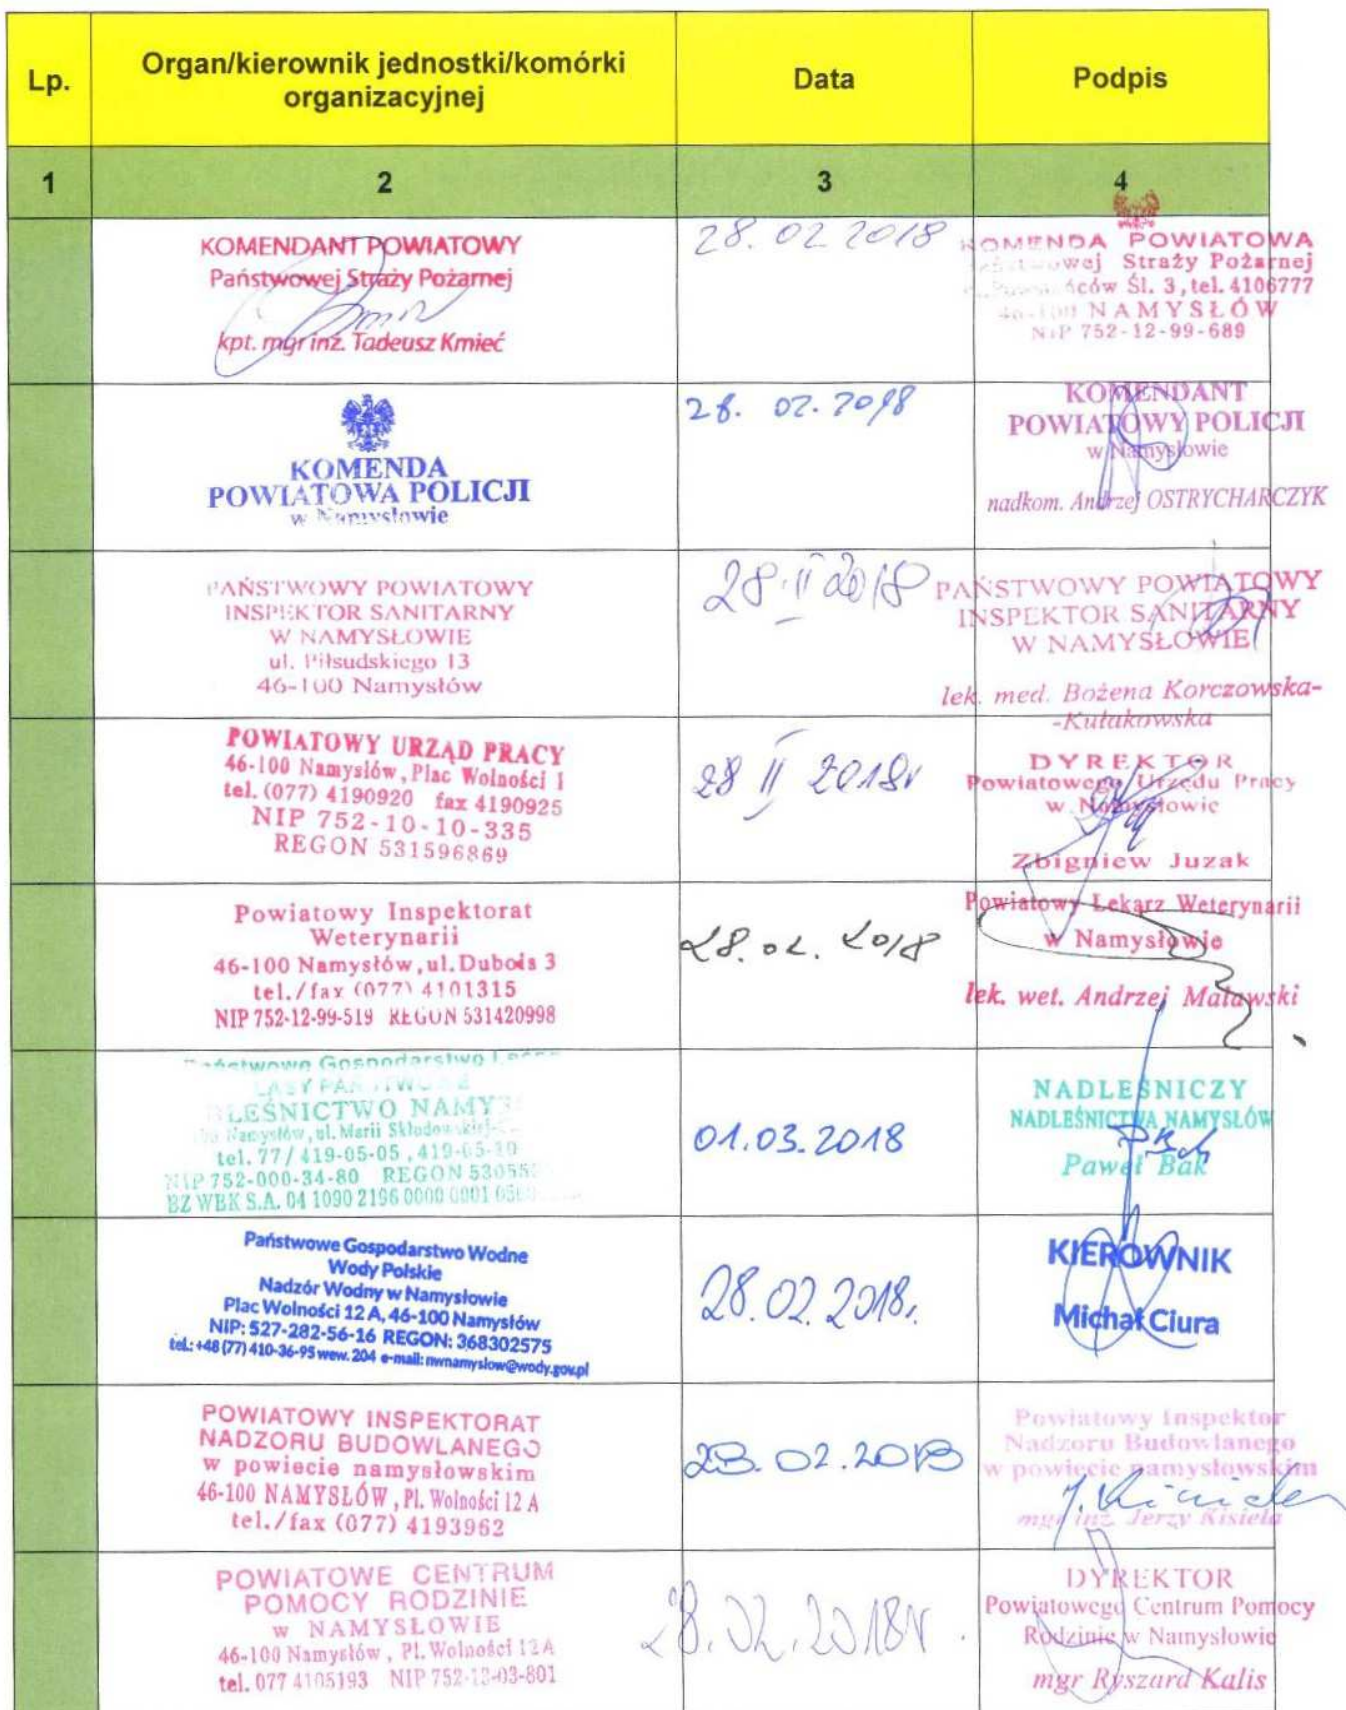 Lp.
Organ/kierownik jednostki/komórki
organizacyjnej
Data
Podpis
1
2
3
4
KOMENDANT POWIATOWY
Państwowej Straży Pożarnej
kpt. mgr inż. Tadeusz Kmieć
28.02 2018
KOMENDA POWIATOWA
Straży Pożarnej
Śl. 3, tel. 4106777
46-100 NAMYSŁÓW
NIP 752-12-99-689
KOMENDA
POWIATOWA POLICJI
w Namysłowie
28. 02. 2018
KOMENDANT
POWIATOWY POLICJI
w Namysłowie
nadkom. Andrzej OSTRYCHARCZYK
PAŃSTWOWY POWIATOWY
INSPEKTOR SANITARNY
W NAMYSŁOWIE
ul. Piłsudskiego 13
46-100 Namysłów
28.II 2018
PAŃSTWOWY POWIATOWY
INSPEKTOR SANITARNY
W NAMYSŁOWIE
lek. med. Bożena Korczowska-
-Kułakowska
POWIATOWY URZĄD PRACY
46-100 Namysłów, Plac Wolności 1
tel. (077) 4190920 fax 4190925
NIP 752-10-10-335
REGON 531596869
28 II 2018r
DYREKTOR
Powiatowego Urzędu Pracy
w Namysłowie
Zbigniew Juzak
Powiatowy Inspektorat
Weterynarii
46-100 Namysłów, ul. Dubois 3
tel./fax (077) 4101315
NIP 752-12-99-519 REGON 531420998
28.02. 2018
Powiatowy Lekarz Weterynarii
w Namysłowie
lek. wet. Andrzej Matawski
Państwowe Gospodarstwo
LASY
LEŚNICTWO
Namysłów, ul. Marii
tel. 77/ 419-05-05, 419-05-10
NIP 752-000-34-80 REGON
BZ WBK S.A. 04 1090 2196 0000 0001
01.03.2018
NADLEŚNICZY
NADLEŚNICTWA NAMYSŁÓW
Paweł Bąk
Państwowe Gospodarstwo Wodne
Wody Polskie
Nadzór Wodny w Namysłowie
Plac Wolności 12 A, 46-100 Namysłów
NIP: 527-282-56-16 REGON: 368302575
tel.: +48 (77) 410-36-95 wew. 204 e-mail: nwnamyslow@wody.gov.pl
28.02.2018r.
KIEROWNIK
Michał Ciura
POWIATOWY INSPEKTORAT
NADZORU BUDOWLANEGO
w powiecie namysłowskim
46-100 NAMYSŁÓW, Pl. Wolności 12 A
tel./fax (077) 4193962
28.02.2018
Powiatowy Inspektor
Nadzoru Budowlanego
w powiecie namysłowskim
mgr inż. Jerzy Kisiela
POWIATOWE CENTRUM
POMOCY RODZINIE
w NAMYSŁOWIE
46-100 Namysłów, Pl. Wolności 12A
tel. 077 4105193 NIP 752-13-03-801
28.02.2018r.
DYREKTOR
Powiatowego Centrum Pomocy
Rodzinie w Namysłowie
mgr Ryszard Kalis